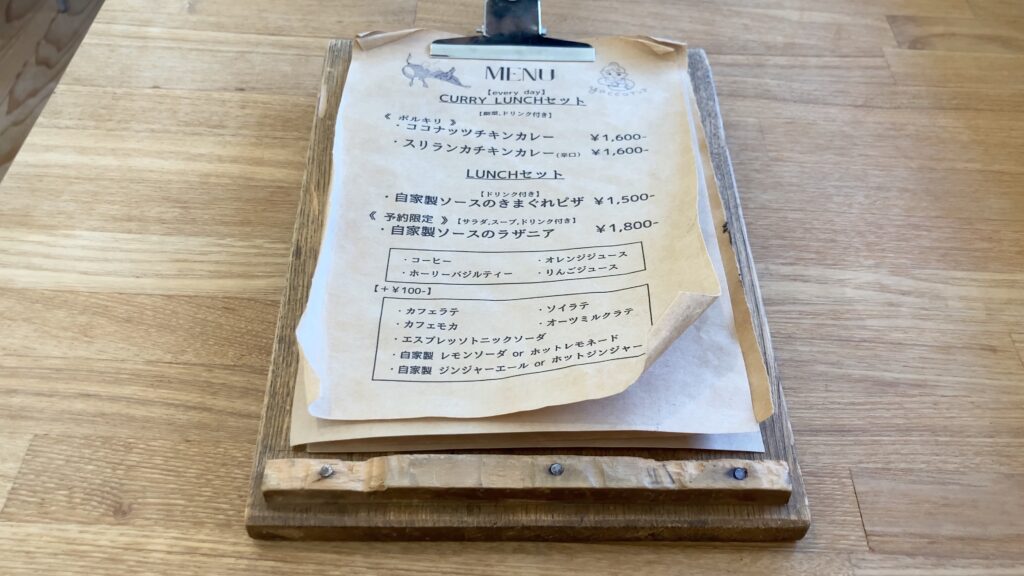 MENU
【every day】
CURRY LUNCHセット
【副菜,ドリンク付き】
《 ポルキリ 》
・ココナッツチキンカレー ￥1,600-
・スリランカチキンカレー(辛口) ￥1,600-
LUNCHセット
【ドリンク付き】
・自家製ソースのきまぐれピザ ￥1,500-
《 予約限定 》【サラダ,スープ,ドリンク付き】
・自家製ソースのラザニア ￥1,800-
・コーヒー ・オレンジジュース
・ホーリーバジルティー ・りんごジュース
【＋￥100-】
・カフェラテ ・ソイラテ
・カフェモカ ・オーツミルクラテ
・エスプレッソトニックソーダ
・自家製 レモンソーダ or ホットレモネード
・自家製 ジンジャーエール or ホットジンジャー